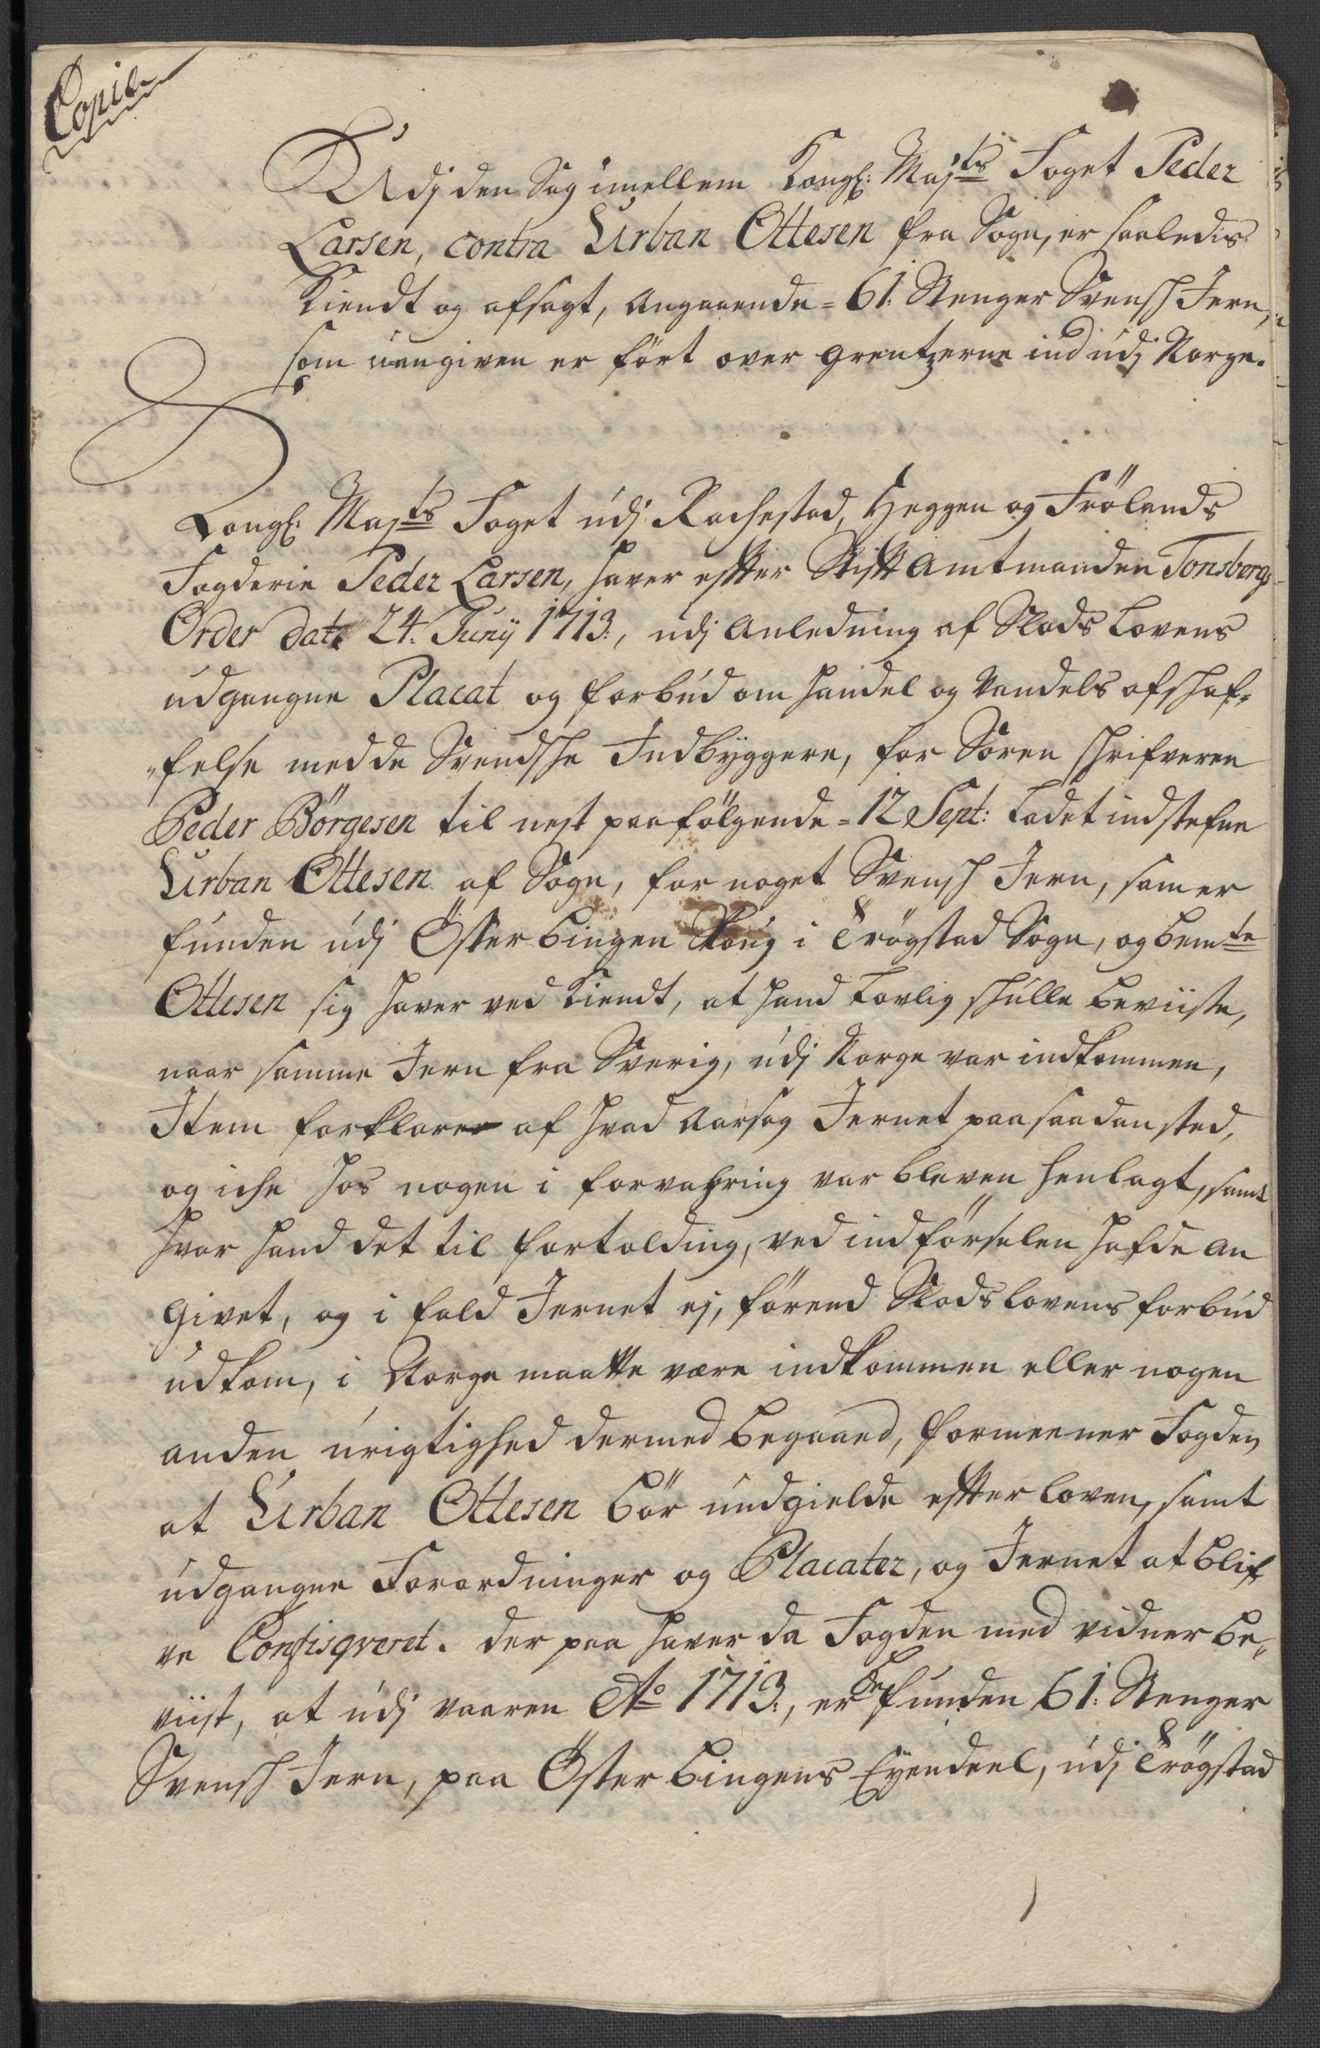 Copie
Udj den Sag imellem Kongl: Majts Foget Peder
Larsen, contra Urban Ottesen fra Sogn, er saaledis
Kiendt og afsagt, Angaaende = 61: Stenger Svensch Jern,
som uangiven er ført over grentzerne ind udj Norge.
Kongl: Majts Foget udj Rachestad, Heggen og Frølands
Fogderie Peder Larsen, haver efter Stift Amtmanden Tonsbergs
Order dat: 24: Junij 1713:, udj Anledning af Slods Lovens
udgangne Placat og forbud om handel og Vandels afschaf-
felse med de Svendsche Indbyggere, for Soren schrifveren
Peder Börgesen til nest paafølgende = 12 Sept: Ladet indstefne
Urban Ottesen af Sogn, for noget Svensch Jern, som er
funden udj Öster bingen Skoug i Trögstad Sogn, og bemte
Ottesen sig haver ved Kiendt, at hand Lovlig schulle beviiste,
naar samme Jern fra Sverig, udj Norge var indkommen,
Item forklarer af hvad Aarsag Jernet paa saadan sted,
og iche hos nogen i forvahring var bleven henlagt, samt
hvor hand det til fortolding, ved indförselen hafde An
givet, og i fald Jernet ej, förend Slods Lovens forbud
udkom, i Norge maatte være indkommen eller nogen
anden urigtighed dermed begaaed, formeener Fogden
at Urban Ottesen bör undgielde efter loven, samt
udgangne Forordninger og Placater, og Jernet at blif
ve Confisqveret. der paa haver da Fogden med vidner be-
viist, at udj vaaren Ao 1713:, er befunden 61: Stenger
Svensch Jern, paa Öster bingens Eyendeel, udj Trögstad